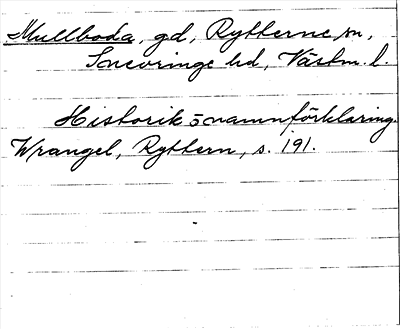 Mullboda, gd, Rytterne sn,
Snevringe hd, Västm. l.
Historik o namnförklaring.
Wrangel, Ryttern, s. 191.